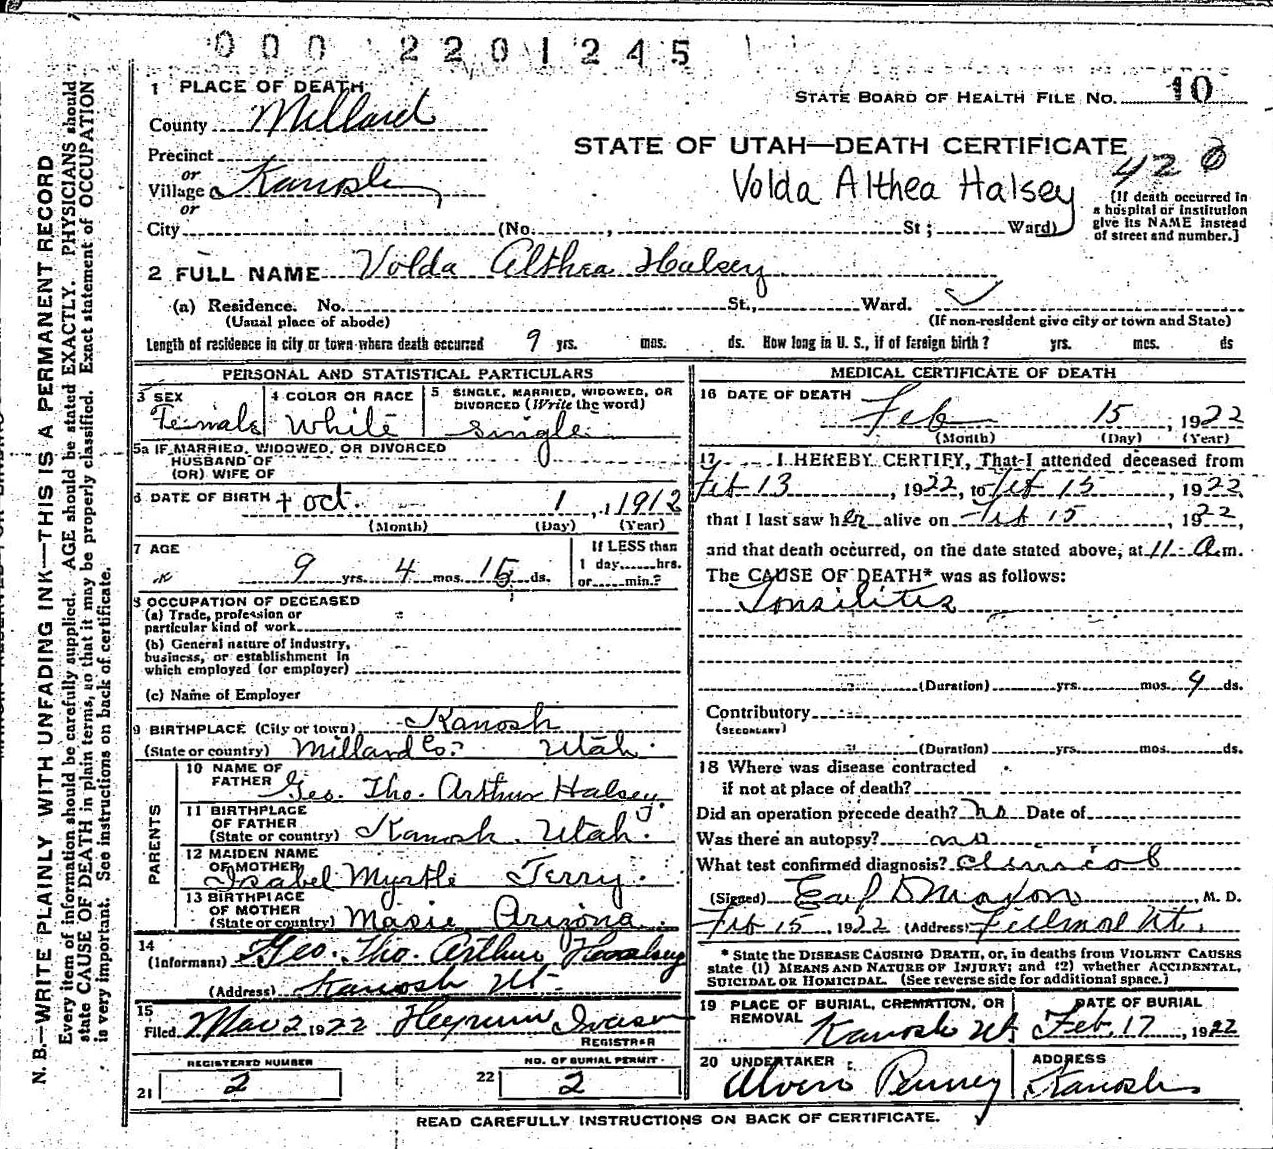 000 2201245
1 PLACE OF DEATH
STATE BOARD OF HEALTH FILE NO. 10
County Millard
STATE OF UTAH—DEATH CERTIFICATE
420
Precinct
or
Village Kanosh
or
Volda Althea Halsey
[If death occurred in
a hospital or institution
give its NAME instead
of street and number.]
City (No. , St; Ward)
2 FULL NAME Volda Althea Halsey
(a) Residence. No. St., Ward.
(Usual place of abode) (If non-resident give city or town and State)
Length of residence in city or town where death occurred 9 yrs. mos. ds. How long in U. S., if of foreign birth? yrs. mos. ds
PERSONAL AND STATISTICAL PARTICULARS
3 SEX
Female
4 COLOR OR RACE
White
5 SINGLE, MARRIED, WIDOWED, OR
DIVORCED (Write the word)
Single
5a IF MARRIED, WIDOWED, OR DIVORCED
HUSBAND OF
(OR) WIFE OF
6 DATE OF BIRTH Oct. 1, 1912
(Month) (Day) (Year)
7 AGE
9 yrs. 4 mos. 15 ds.
If LESS than
1 day hrs.
or min.?
8 OCCUPATION OF DECEASED
(a) Trade, profession or
particular kind of work
(b) General nature of industry,
business, or establishment in
which employed (or employer)
(c) Name of Employer
9 BIRTHPLACE (City or town) Kanosh
(State or country) Millard Co. Utah.
PARENTS
10 NAME OF
FATHER Geo. Tho. Arthur Halsey.
11 BIRTHPLACE
OF FATHER
(State or country) Kanosh Utah.
12 MAIDEN NAME
OF MOTHER
Isabel Myrtle Terry.
13 BIRTHPLACE
OF MOTHER
(State or country) Masie Arizona.
14
(Informant) Geo. Tho. Arthur Halsey
(Address) Kanosh Ut
15
Filed Mar 2 1922 Heyrum
REGISTRAR
REGISTERED NUMBER
21 2
NO. OF BURIAL PERMIT
22 2
MEDICAL CERTIFICATE OF DEATH
16 DATE OF DEATH
Feb 15, 1922
(Month) (Day) (Year)
17 I HEREBY CERTIFY, That I attended deceased from
Feb 13, 1922, to Feb 15, 1922,
that I last saw her alive on Feb 15, 1922,
and that death occurred, on the date stated above, at 11 a.m.
The CAUSE OF DEATH* was as follows:
Tonsilitis
(Duration) yrs. mos. 4 ds.
Contributory
(SECONDARY)
(Duration) yrs. mos. ds.
18 Where was disease contracted
if not at place of death?
Did an operation precede death? no Date of
Was there an autopsy? no
What test confirmed diagnosis? clinical
(Signed) Earl M. D.
Feb 15, 1922 (Address) Fillmore Ut.
* State the DISEASE CAUSING DEATH, or, in deaths from VIOLENT CAUSES
state (1) MEANS AND NATURE OF INJURY; and (2) whether ACCIDENTAL,
SUICIDAL OR HOMICIDAL. (See reverse side for additional space.)
19 PLACE OF BURIAL, CREMATION, OR
REMOVAL
Kanosh Ut
DATE OF BURIAL
Feb. 17, 1922
20 UNDERTAKER
Alvero Penney
ADDRESS
Kanosh
READ CAREFULLY INSTRUCTIONS ON BACK OF CERTIFICATE.
N. B.—WRITE PLAINLY WITH UNFADING INK—THIS IS A PERMANENT RECORD
Every item of information should be carefully supplied. AGE should be stated EXACTLY. PHYSICIANS should
state CAUSE OF DEATH in plain terms, so that it may be properly classified. Exact statement of OCCUPATION
is very important. See instructions on back of certificate.